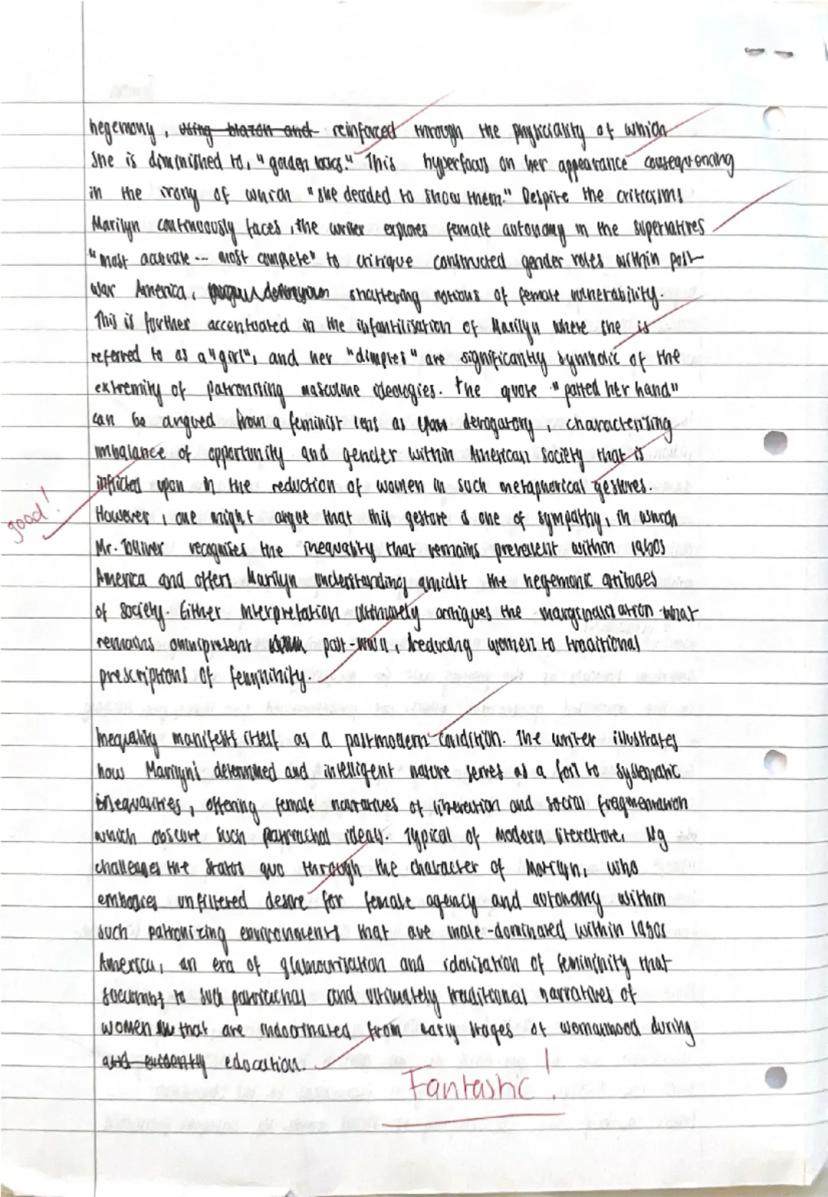 hegemony, using blazon and reinforced through the physicality of which
she is diminished to, "golden locks." This hyperfocus on her appearance consequencing
in the irony of which "she decided to show them." Despite the criticisms
Marilyn continuously faces, the writer explores female autonomy in the superlatives
"most accurate -- most complete" to critique constructed gender roles within post-
war America, shattering notions of female vulnerability.
This is further accentuated in the infantilisation of Marilyn where she is
referred to as a "girl", and her "dimples" are significantly symbolic of the
extremity of patronising masculine ideologies. The quote "patted her hand"
can be argued from a feminist lens as derogatory, characterising
imbalance of opportunity and gender within American society that is
inflicted upon in the reduction of women in such metaphorical gestures.
good!
However, one might argue that this gesture is one of sympathy, in which
Mr. Tolliver recognises the inequality that remains prevalent within 1950s
America and offers Marilyn understanding amidst the hegemonic attitudes
of society. Either interpretation ultimately critiques the marginalisation that
remains omnipresent post-WWII, reducing women to traditional
prescriptions of femininity.
Inequality manifests itself as a postmodern condition. The writer illustrates
how Marilyn's determined and intelligent nature serves as a foil to systematic
inequalities, offering female narratives of liberation and social fragmentation
which obscure such patriachal ideals. Typical of modern literature, Ng
challenges the status quo through the character of Marilyn, who
embodies unfiltered desire for female agency and autonomy within
such patronizing environments that are male-dominated within 1950s
America, an era of glamourisation and idolisation of femininity that
succumbs to such patriachal and ultimately traditional narratives of
women that are indoctrinated from early stages of womanhood during
and evidently education.
Fantastic!